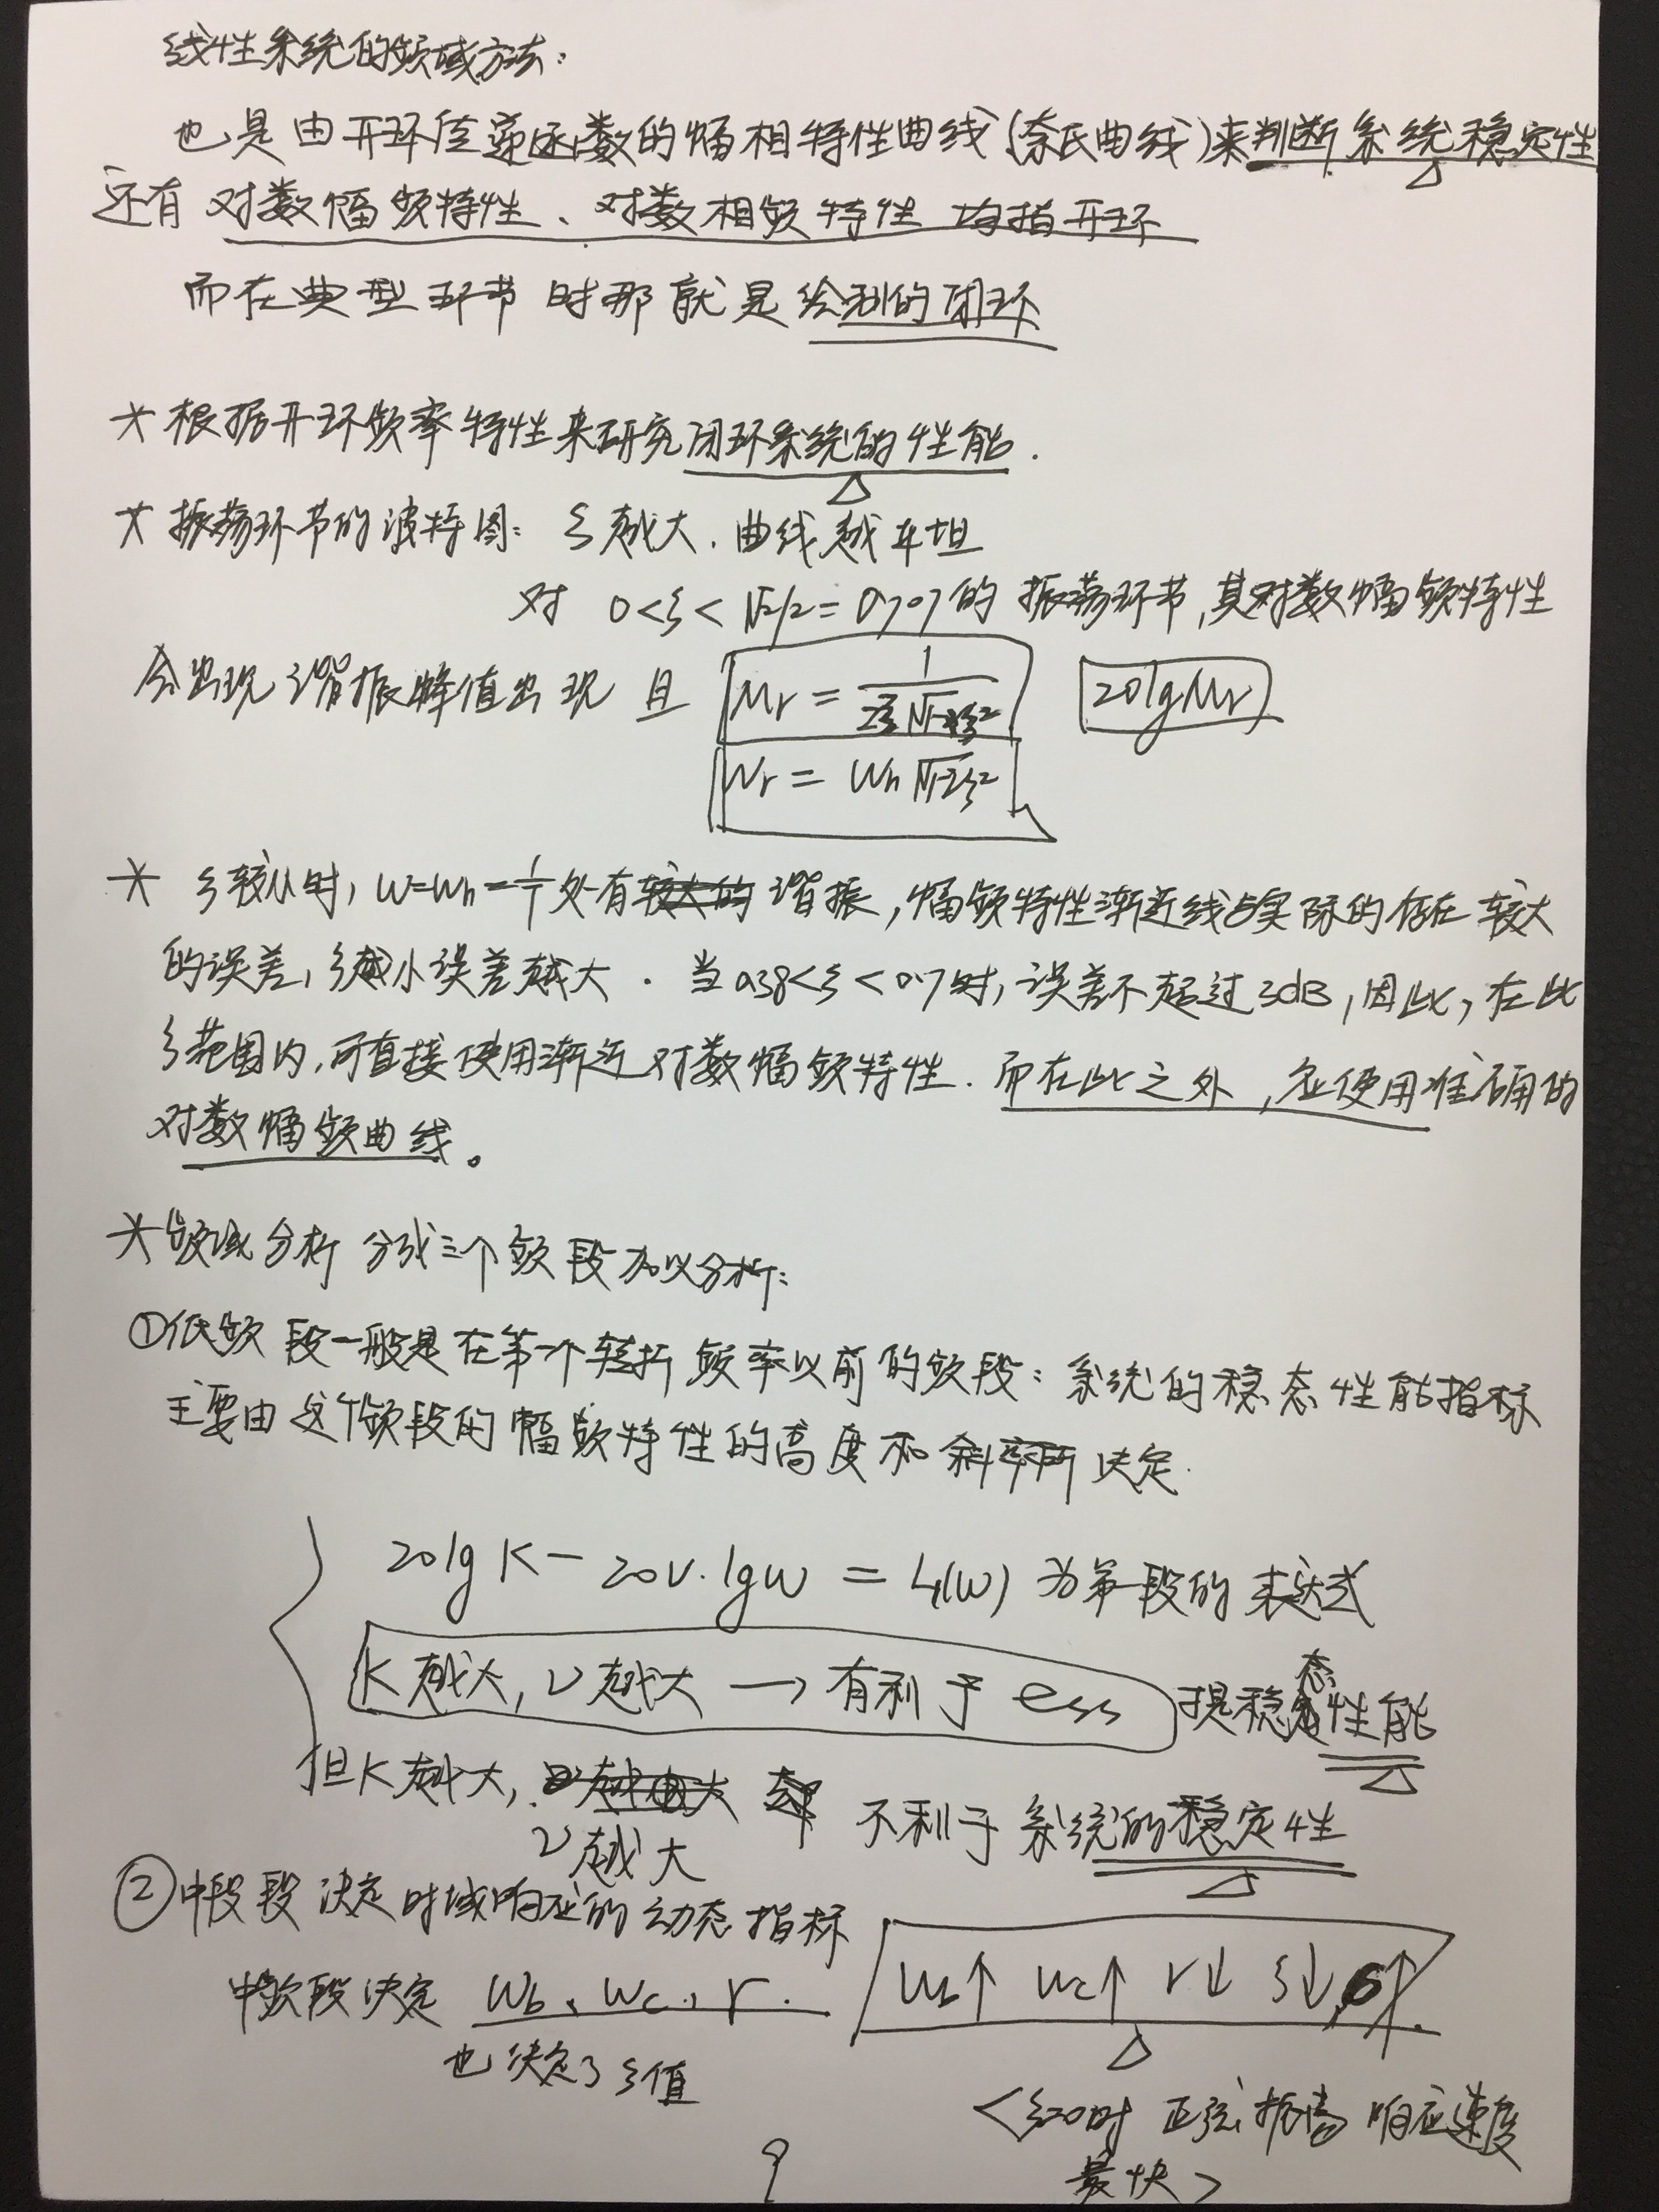 线性系统的频域方法：
也是由开环传递函数的幅相特性曲线(奈氏曲线)来判断系统稳定性
还有对数幅频特性、对数相频特性 均指开环
而在典型环节时那就是绘制的闭环
* 根据开环频率特性来研究闭环系统的性能.
* 振荡环节的波特图: ξ越大.曲线越平坦
对 0<ξ<√2/2=0.707的振荡环节,其对数幅频特性
会出现谐振峰值出现 且 Mr = 1/(2ξ√1-ξ²) 20lgMr
Wr = Wn√1-2ξ²
* ξ较小时, W=Wn=1/T处有较大的谐振,幅频特性渐近线与实际的存在较大
的误差,ξ越小误差越大. 当0.38<ξ<0.7时,误差不超过3dB,因此,在此
ξ范围内,可直接使用渐近对数幅频特性.而在此之外,应使用准确的
对数幅频曲线。
* 频域分析 分成三个频段加以分析:
①低频段一般是在第一个转折频率以前的频段: 系统的稳态性能指标
主要由这个频段的幅频特性的高度和斜率所决定.
20lgK-20ν.lgW = L1(W) 为第一段的表达式
K越大,ν越大→有利于ess 提稳态性能
但K越大, ν越大 不利于系统的稳定性
②中段段决定时域响应的动态指标
中频段决定 Wb、Wc、r. Wb↑ Wc↑ r↓ ξ↓,σ↑.
也决定了ξ值
<ξ=0时 正弦振荡 响应速度
最快>
9